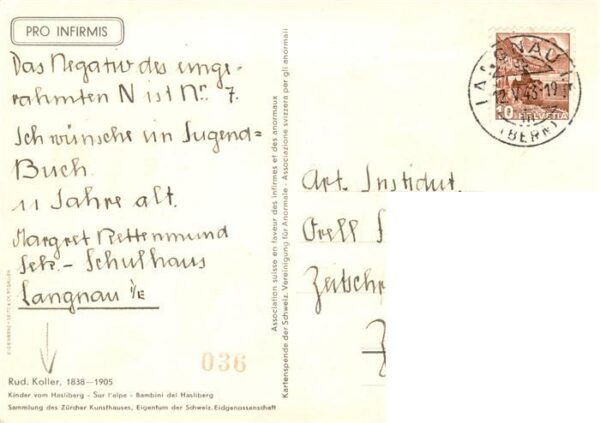 PRO INFIRMIS
Das Negativ des umge-
rahmten N ist Nr. 7.
Ich wünsche ein Jugend=
Buch.
11 Jahre alt.
Margret Rettenmund
Sek. - Schulhaus
Langnau i/E
036
Rud. Koller, 1838—1905
Kinder vom Hasliberg - Sur l'alpe - Bambini del Hasliberg
Sammlung des Zürcher Kunsthauses, Eigentum der Schweiz. Eidgenossenschaft
Association suisse en faveur des infirmes et des anormaux - Associazione svizzera per gli anormali
Kartenspende der Schweiz. Vereinigung für Anormale
LANGNAU
(BERN)
10 HELVETIA
Art. Institut,
Orell
Zeitschr